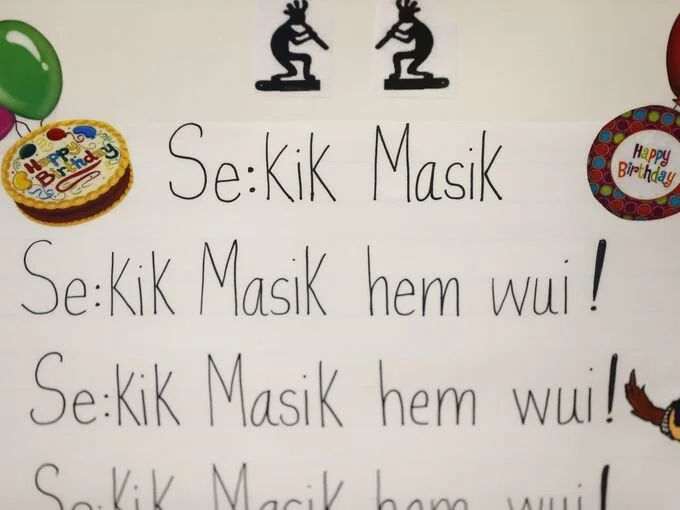 Se:kik Masik
Happy Birthday
Happy Birthday
Se:kik Masik hem wui!
Se:kik Masik hem wui!
Se:kik Masik hem wui!